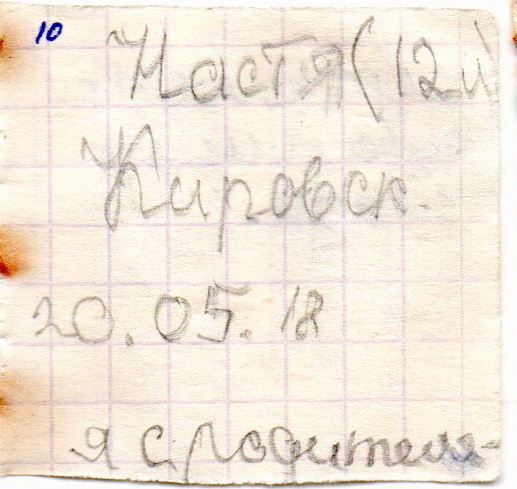 10
Настя (12 л
Кировск.
20.05.18
я с родителя-